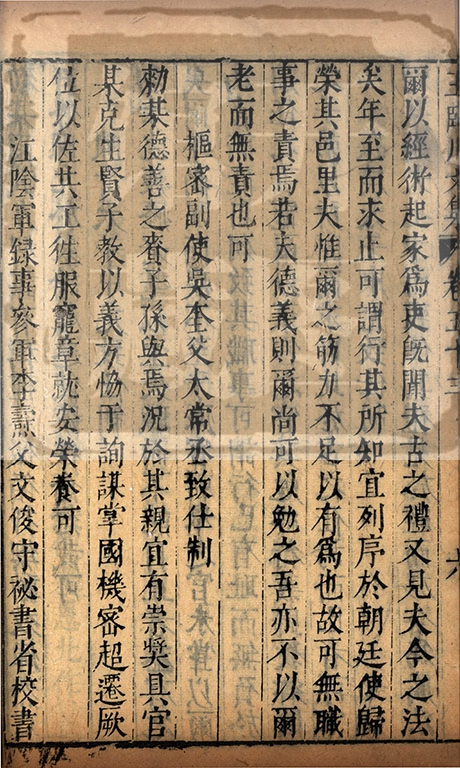 王臨川文集 卷五十三 六
爾以經術起家爲吏旣聞夫古之禮又見夫今之法
矣年至而求止可謂行其所知宜列序於朝廷使歸
榮其邑里夫惟爾之筋力不足以有爲也故可無職
事之責焉若夫德義則爾尚可以勉之吾亦不以爾
老而無責也可
樞密副使吳奎父太常丞致仕制
勑某德善之賚子孫與焉況於其親宜有崇奬具官
某克生賢子教以義方恊于詢謀掌國機密超遷厥
位以佐共工徃服寵章就安榮養可
江陰軍録事參軍李燾父文俊守祕書省校書